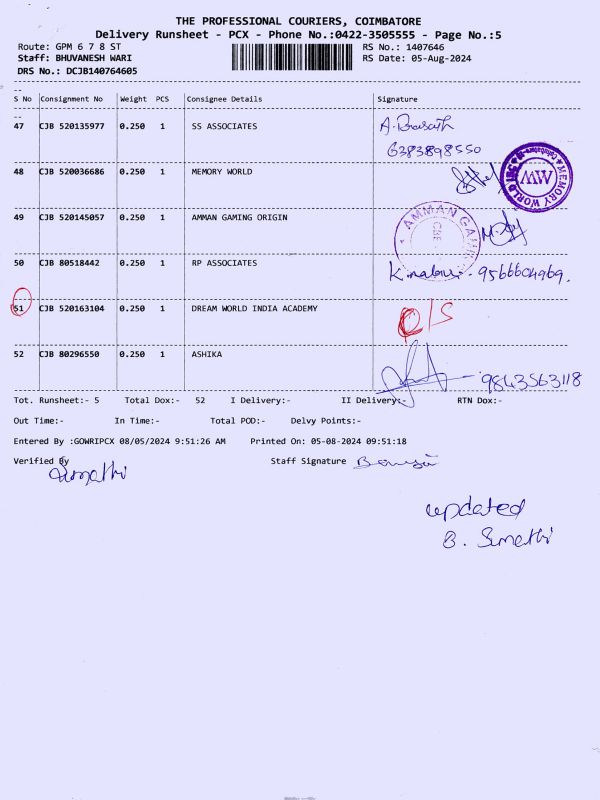 THE PROFESSIONAL COURIERS, COIMBATORE
Delivery Runsheet - PCX - Phone No.:0422-3505555 - Page No.:5
Route: GPM 6 7 8 ST RS No.: 1407646
Staff: BHUVANESH WARI RS Date: 05-Aug-2024
DRS No.: DCJB140764605
S No Consignment No Weight PCS Consignee Details Signature
47 CJB 520135977 0.250 1 SS ASSOCIATES A. Barath
6383898550
48 CJB 520036686 0.250 1 MEMORY WORLD MEMORY WORLD MW
49 CJB 520145057 0.250 1 AMMAN GAMING ORIGIN AMMAN CBE
50 CJB 80518442 0.250 1 RP ASSOCIATES 9566604969.
51 CJB 520163104 0.250 1 DREAM WORLD INDIA ACADEMY O/S
52 CJB 80296550 0.250 1 ASHIKA 9843563118
Tot. Runsheet:- 5 Total Dox:- 52 I Delivery:- II Delivery:- RTN Dox:-
Out Time:- In Time:- Total POD:- Delvy Points:-
Entered By :GOWRIPCX 08/05/2024 9:51:26 AM Printed On: 05-08-2024 09:51:18
Verified By Sumathi Staff Signature
updated
B. Sumathi